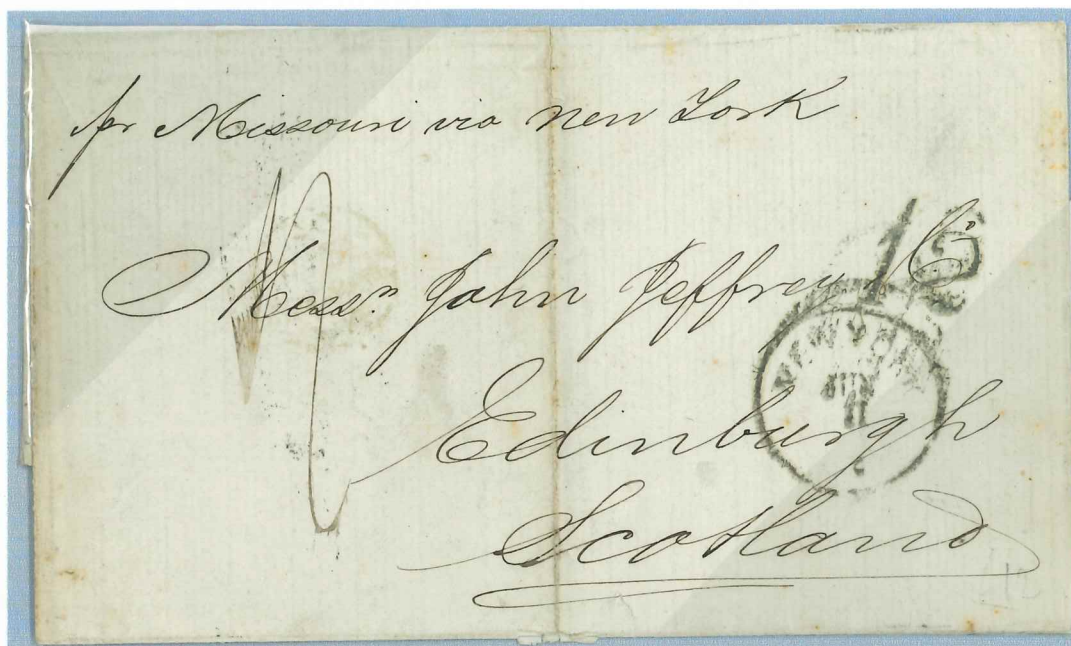 pr Missouri via New York
1/2
Messrs. John Jeffrey & Co
NEW YORK
JUN
11
Edinburgh
Scotland